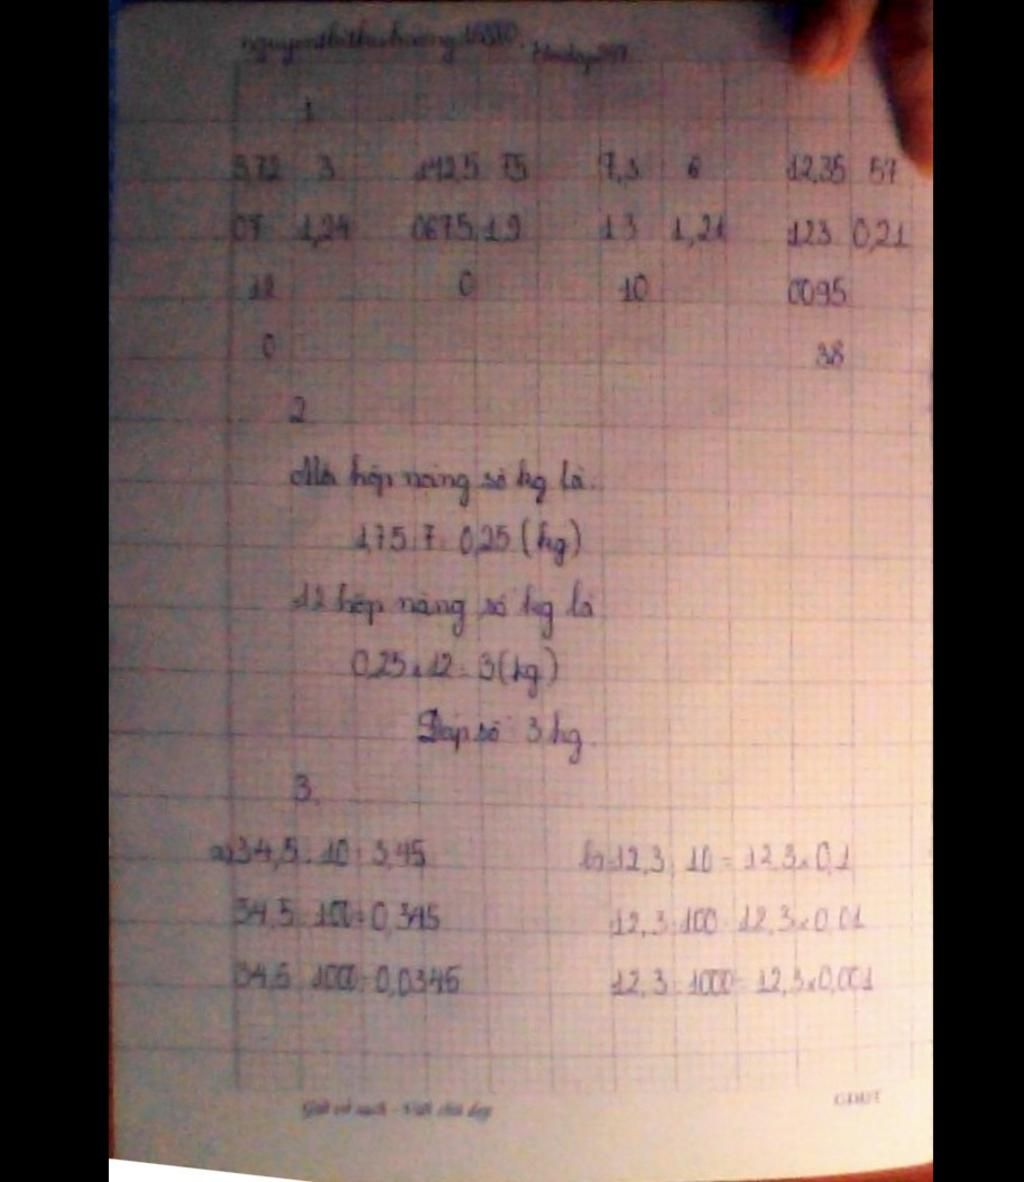 1
3,72 3 142,5 75 7,3 6 12,35 57
07 1,24 0675 1,9 13 1,21 123 0,21
12 0 10 0095
0 38
2
Mỗi hộp nặng số kg là.
1,75 : 7 = 0,25 (kg)
12 hộp nặng số kg là
0,25 x 12 = 3 (kg)
Đáp số 3 kg.
3.
a) 34,5 : 10 = 3,45 b) 12,3 : 10 = 12,3 x 0,1
34,5 : 100 = 0,345 12,3 : 100 = 12,3 x 0,01
34,5 : 1000 = 0,0345 12,3 : 1000 = 12,3 x 0,001